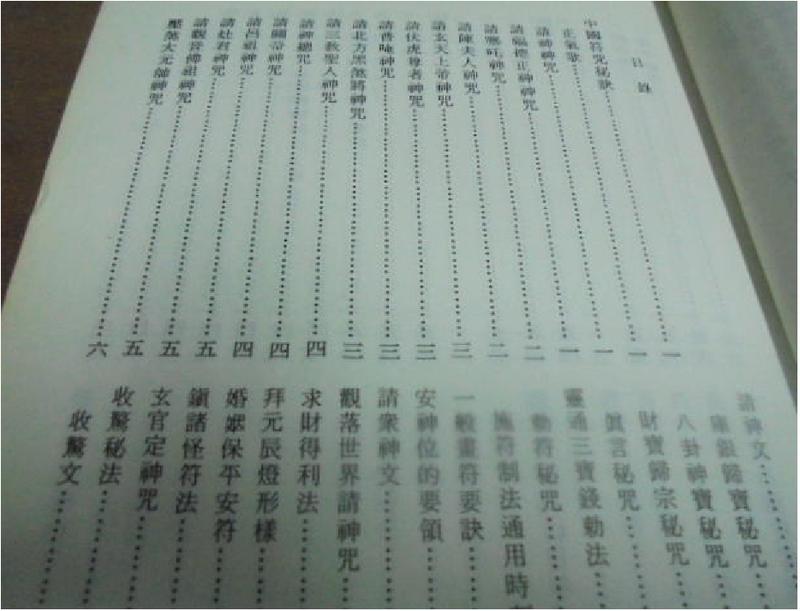 目錄
中國符咒秘訣……一
正氣歌……一
請神神咒……一
請福德正神神咒……一
請哪吒神咒……二
請陳夫人神咒……二
請玄天上帝神咒……三
請伏虎尊者神咒……三
請普唵神咒……三
請北方黑煞將神咒……三
請三教聖人神咒……四
請神總咒……四
請關帝神咒……四
請呂祖神咒……五
請灶君神咒……五
請觀音佛祖神咒……五
壓煞大元帥神咒……六
請神文……
庫銀歸寶秘咒……
八卦神寶秘咒……
財寶歸宗秘咒
真言秘咒……
靈通三寶錢勅法
勅符秘咒……
施符制法通用時
一般畫符要訣
安神位的要領
請衆神文……
觀落世界請神咒
求財得利法……
拜元辰燈形樣
婚姻保平安符
鎮諸怪符法……
玄官定神咒……
收驚秘法……
收驚文……